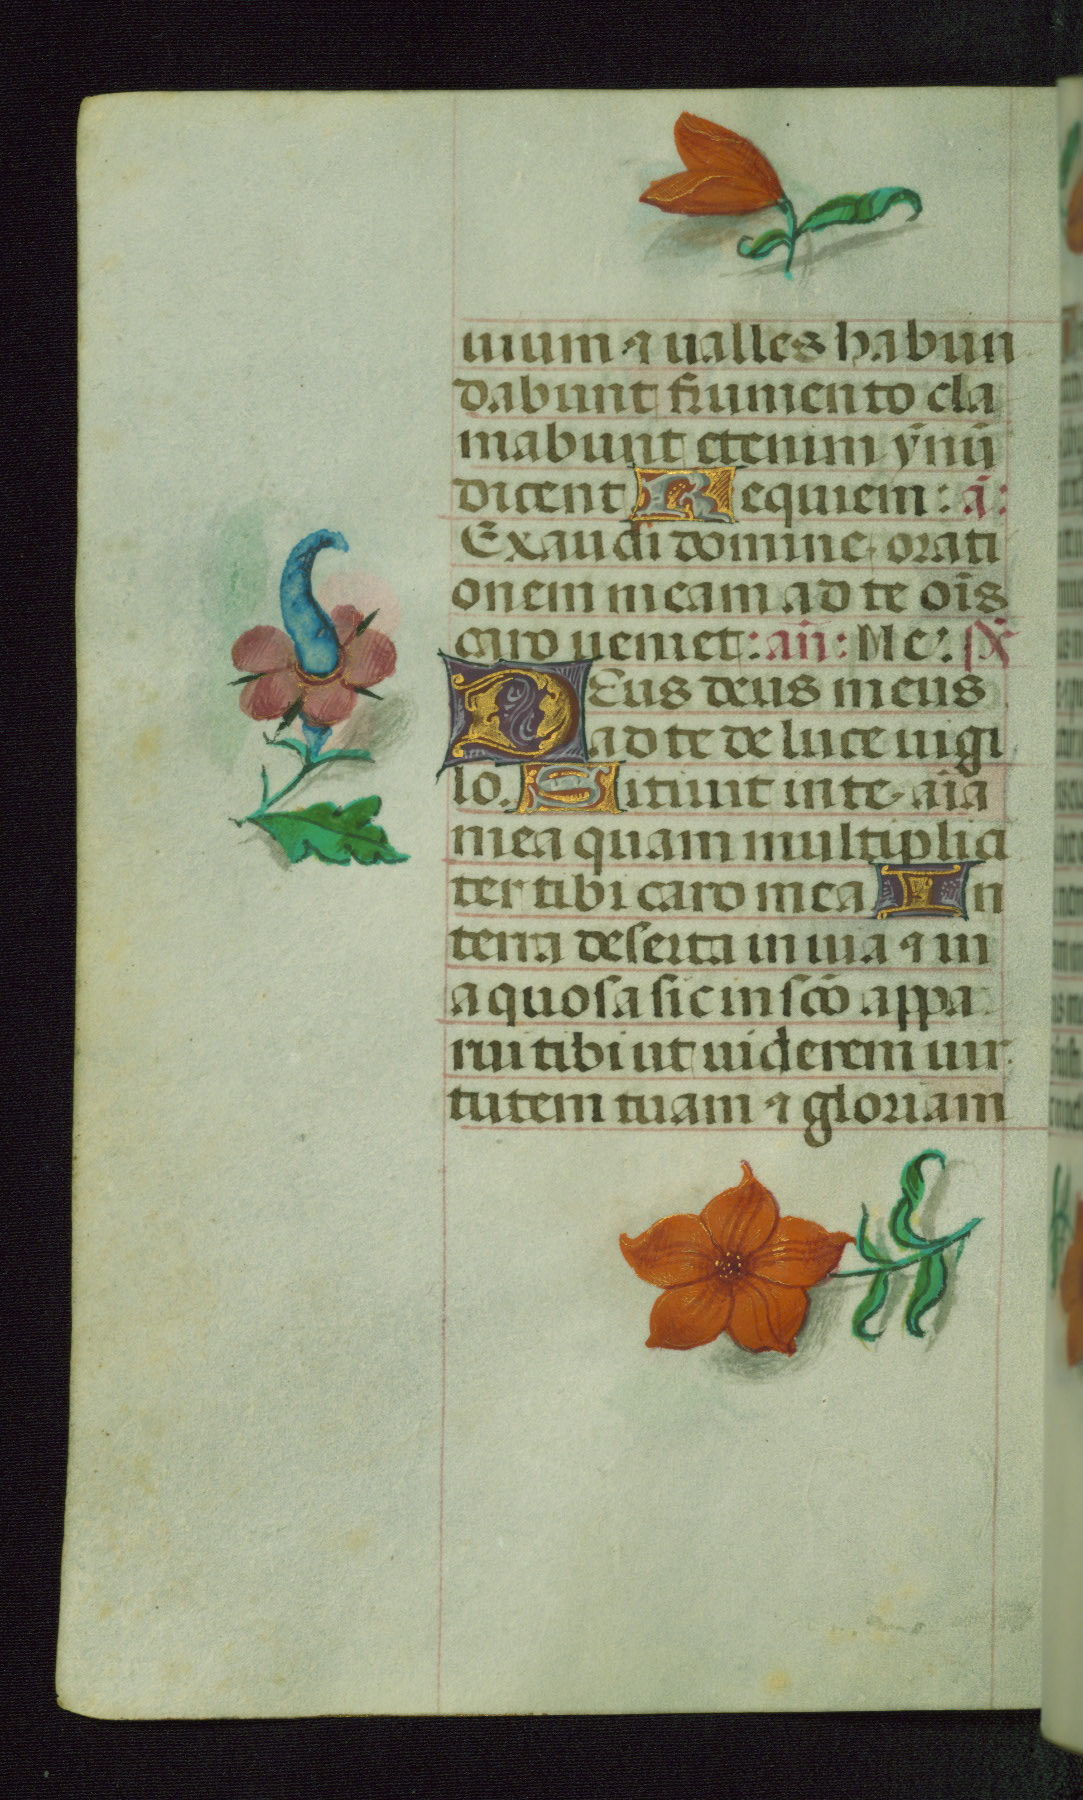 uium ⁊ ualles habun
dabunt frumento cla
mabunt etenim ẏnū
dicent Requiem: ā:
Exaudi domine orati
onem meam ad te oīs
caro ueniet: añ: Ne. ps
Deus deus meus
ad te de luce uigi
lo. Sitiuit in te aīa
mea quam multiplici
ter tibi caro mea In
terra deserta inuia ⁊ in
aquosa sic in scō appa
rui tibi ut uiderem uir
tutem tuam ⁊ gloriam